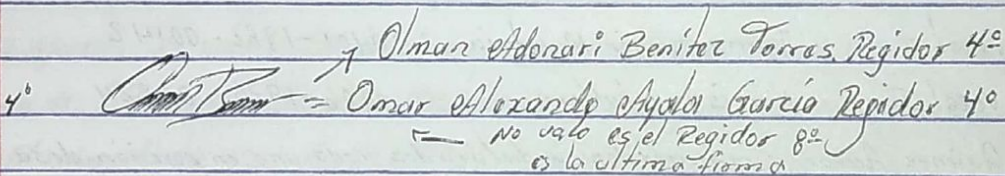 Olman Adonari Benitez Torres. Regidor 4º
4º = Omar Alexande Ayala Garcia Regidor 4º
No vale es el Regidor 8º
es la ultima firma